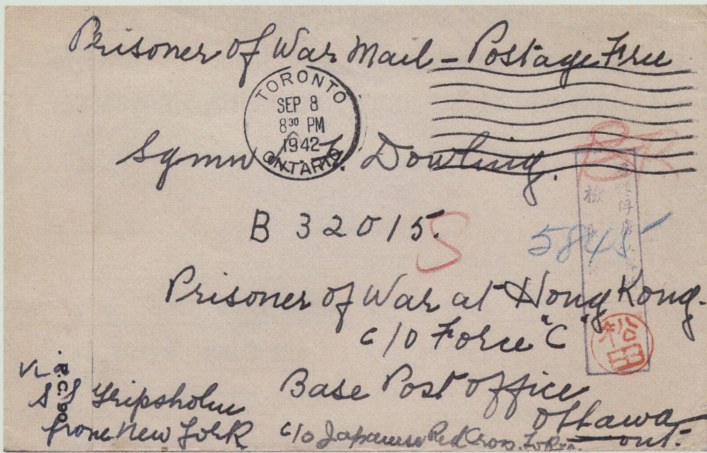 Prisoner of War Mail - Postage Free
TORONTO
SEP 8
8 30 PM
1942
ONTARIO
Sgmn Dowling.
B 32015.
S
5845
Prisoner of War at Hong Kong.
c/o Force "C"
松田
Base Post Office
Ottawa
ont.
P.C. 90
via
SS Gripsholm
from New York
c/o Japanese Red Cross, Tokio.